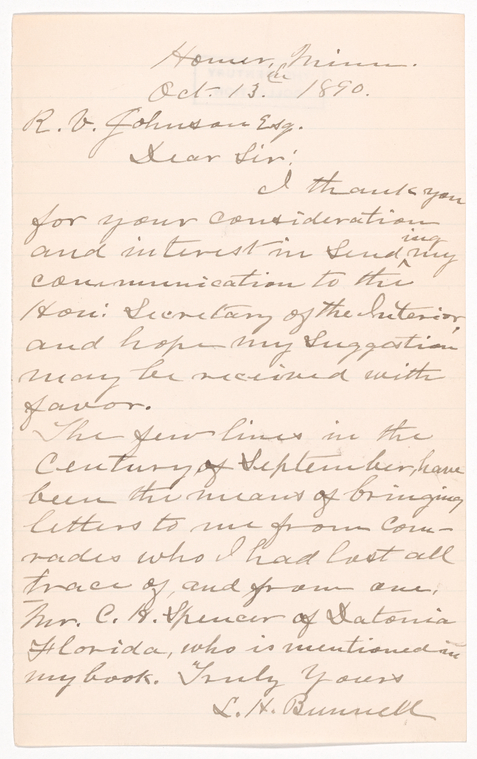 Homer, Minn.
Oct. 13.th 1890.
R. V. Johnson Esq.
Dear Sir:
I thank you
for your consideration
and interest in sending my
communication to the
Hon: Secretary of the Interior,
and hope my suggestion
may be received with
favor.
The few lines in the
Century of September, have
been the means of bringing
letters to me from com-
rades who I had lost all
trace of, and from one,
Mr. C. H. Spencer of Datonia
Florida, who is mentioned in
my book. Truly Yours
L. H. Bunnell